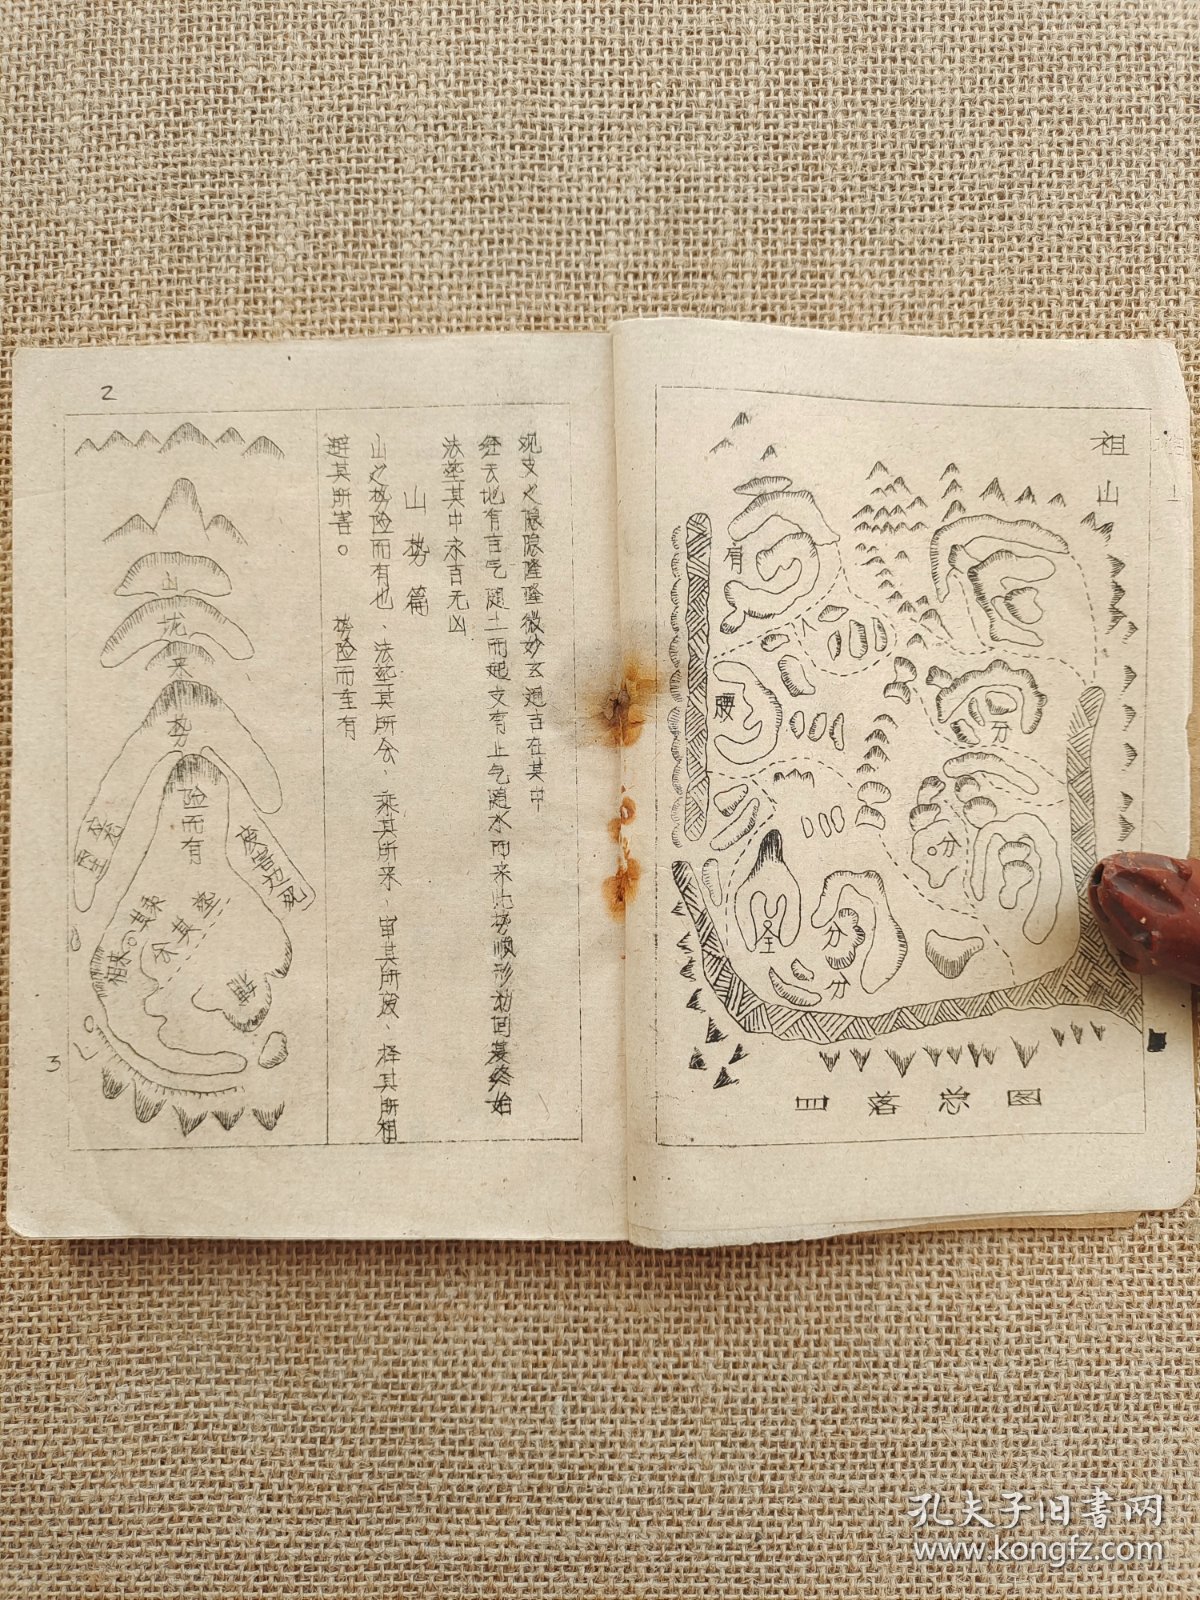 祖山
有
腰
分
分
分
分
四落总图
2
观支之隐隐隆隆微妙玄通吉在其中
经云地有吉气随土而起支有止气随水而来此势顺形动回复终始
法葬其中永百无凶
山势篇
山之势险而有也、法葬其所会、乘其所来、审其所废、择其所相
避其所害。 势险而至有
山垅来势
险而有
3
孔夫子旧書网
www.kongfz.com